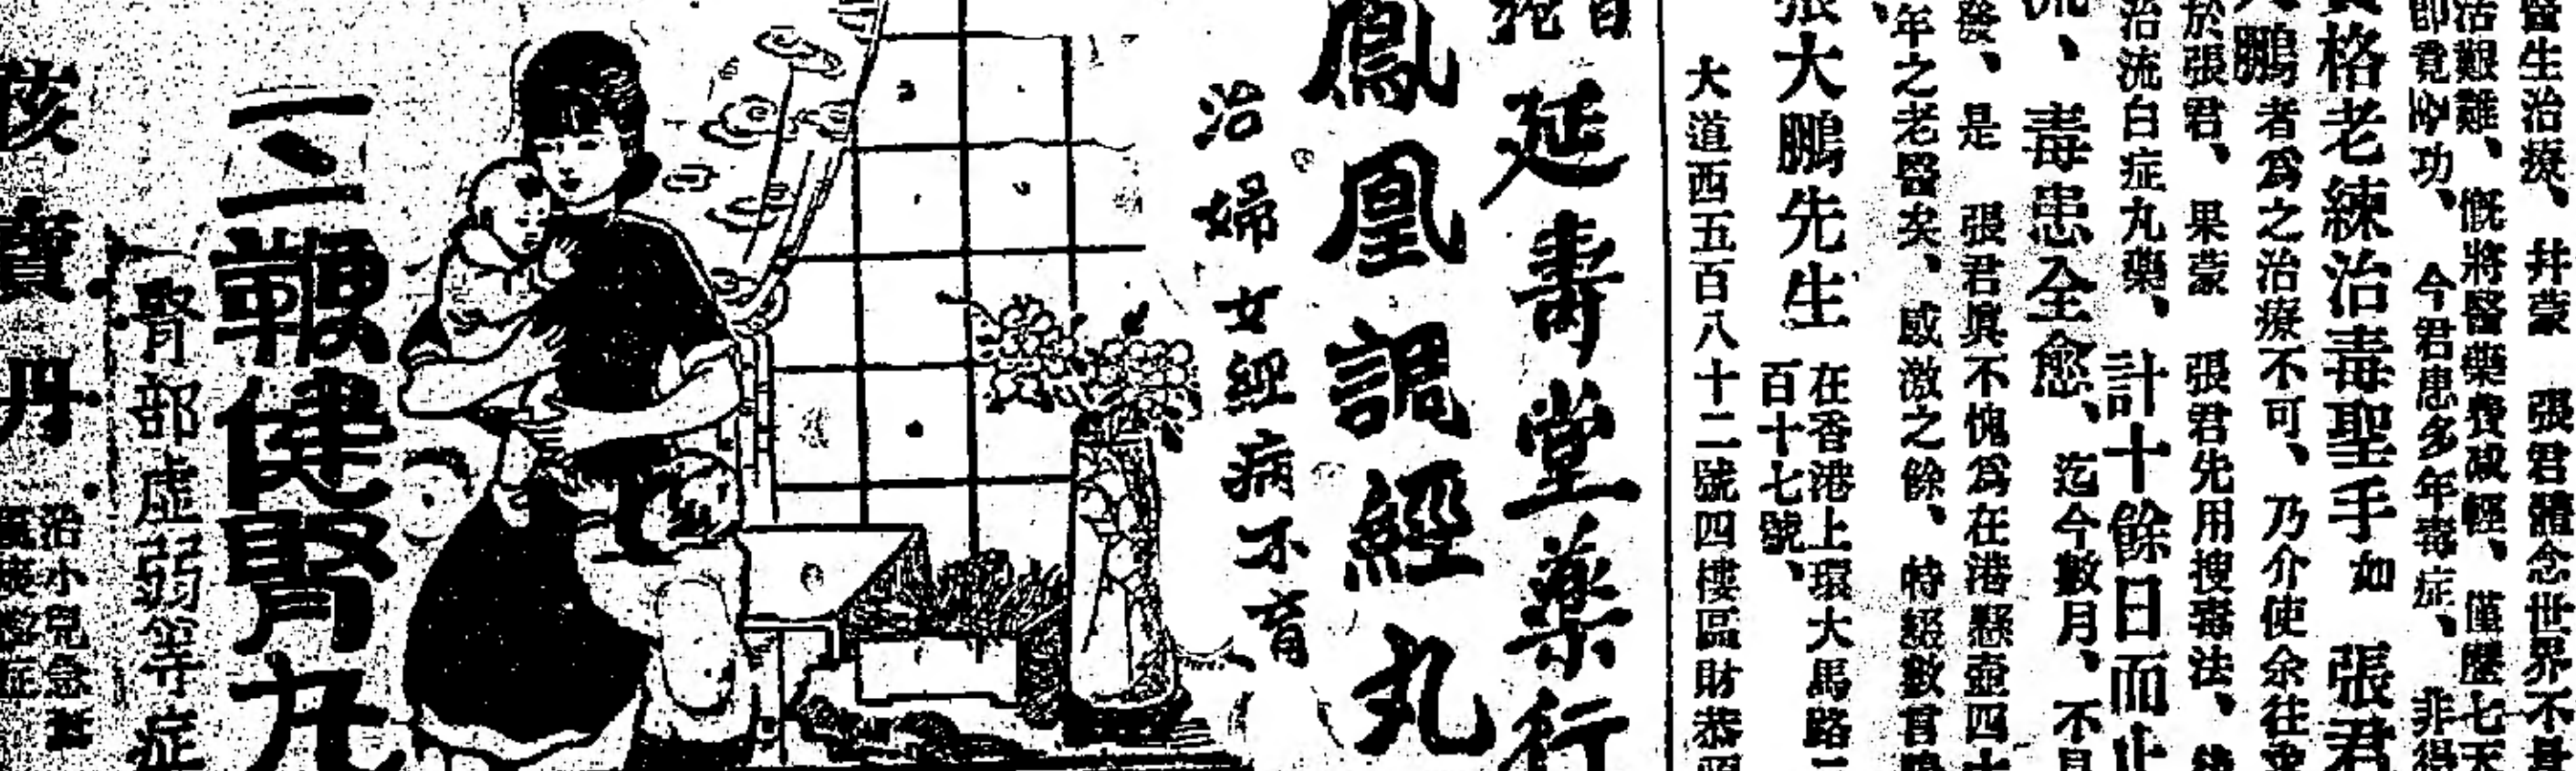 醫生治療、井蒙 張君體念世界不景
活艱難、慨將醫藥費減輕、僅歷七天
即竟功、今君患多年毒症、非得
資格老練治毒聖手如 張君
大鵬者爲之治療不可、乃介使余往
於張君、果蒙 張君先用搜毒法、
治流白症丸藥、計十餘日而止
流、毒患全愈、迄今數月、不見
發、是 張君眞不愧爲在港懸壺四十
年之老醫矣、感激之餘、特綴數言
張大鵬先生 在香港上環大馬路三
百十七號、
大道西五百八十二號四樓區財恭
延壽堂藥行
鳳凰調經丸
治婦女經病不育
三鞭健腎丸
腎部虛弱等症
治小兒急
丹